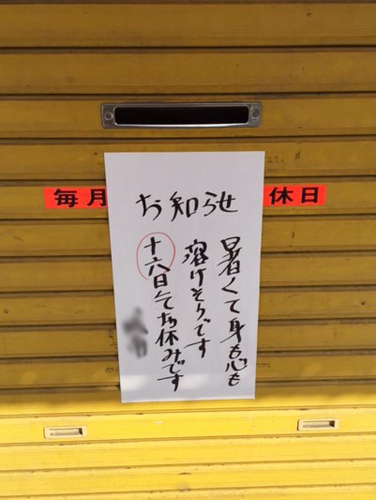 毎月
休日
お知らせ
暑くて身も心も
溶けそうです
十六日までお休みです